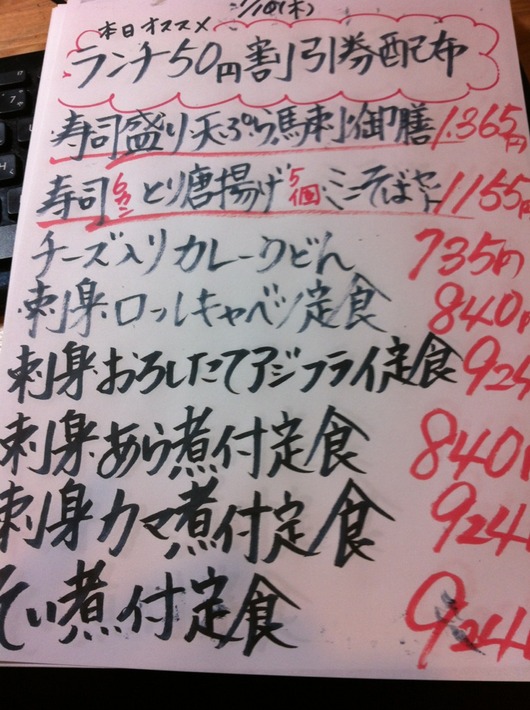 /10(木)
本日オススメ
ランチ50円割引券配布
寿司盛り天ぷら馬刺御膳 1.365円
寿司6カンとり唐揚げ5個ミニそばセット 1155円
チーズ入りカレーうどん 735円
刺身ロールキャベツ定食 840円
刺身おろしたてアジフライ定食 924
刺身あら煮付定食 840
刺身カマ煮付定食 924
煮付定食 924